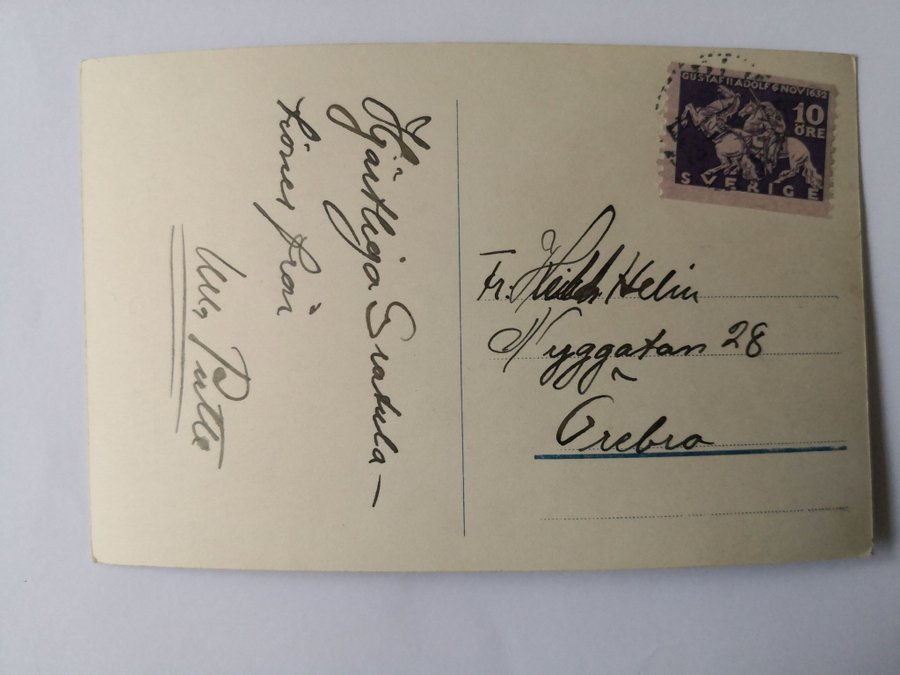 Hjärtliga Gratula-
tioner från
Ulla Putte
GUSTAF II ADOLF 6 NOV 1632
10
ÖRE
SVERIGE
Fr. Helin
Nyggatan 28
Örebro